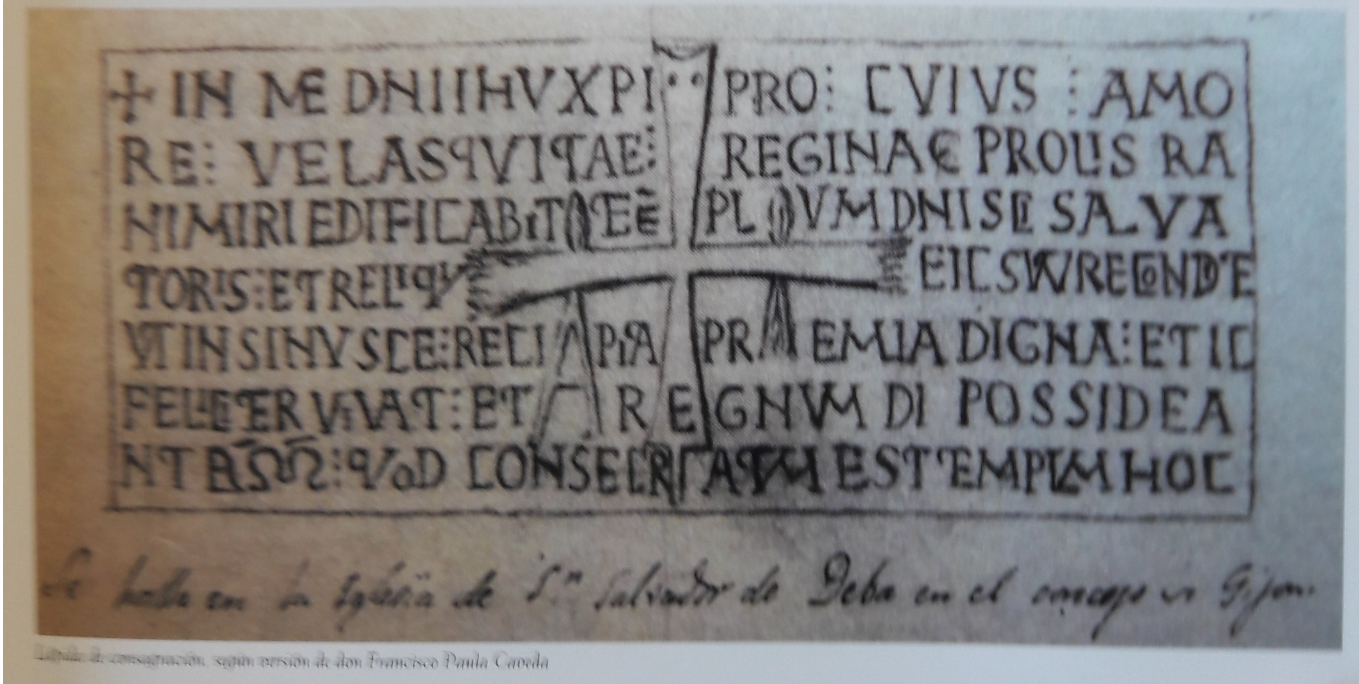 + IN ME DNI IHV XPI PRO: CVIVS : AMO
RE: VELASQVITAE: REGINAE PROLIS RA
NIMIRI EDIFICABIT TEPLVM DNI SCI SALVA
TORIS: ET RELIQV EIVS RECONDE
VT IN SINV SCE: RECIAPIA PRAEMIA DIGNA: ET IC
FELICITER VIVAT: ET REGNVM DI POSSIDEA
NT : QVOD CONSECRATVM EST TEMPLVM HOC
Se halla en la Iglesia de Sn. Salvador de Deba en el concejo Gijon.
de consagración, según versión de don Francisco Paula Caveda